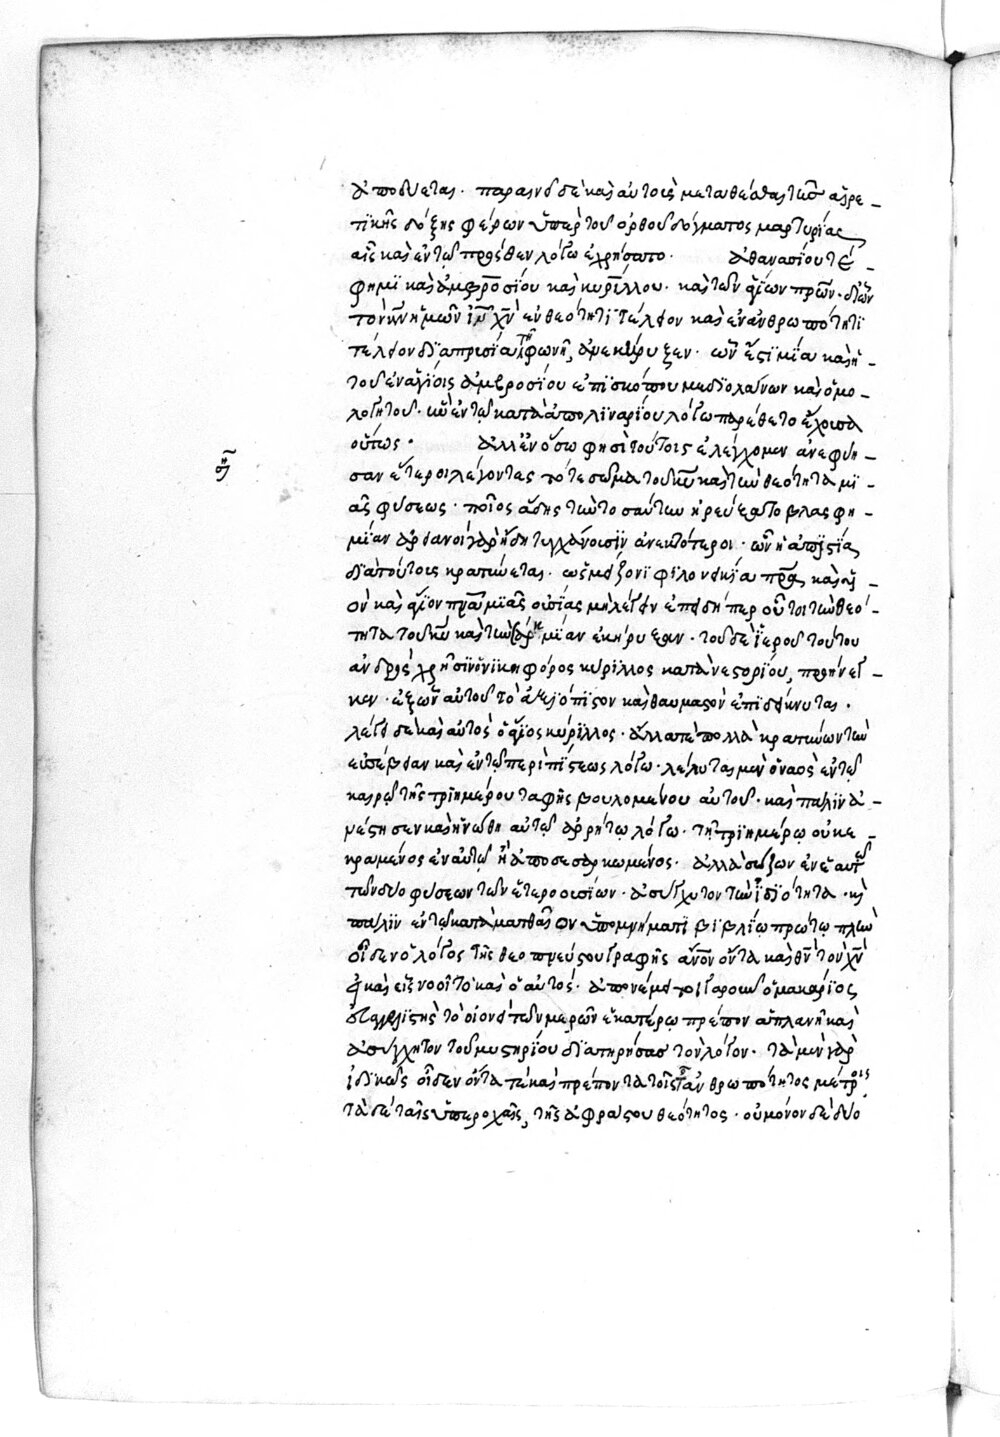 ἀποδύεται. παραινῶ δὲ καὶ αὐτοῖς μεταθέσθαι τῆς αἱρε-
τικῆς δόξης φέρων ὑπὲρ τοῦ ὀρθοῦ δόγματος μαρτυρίας
αἷς καὶ ἐν τῷ πρόσθεν λόγῳ ἐχρήσατο. ἀθανασίου τέ
φημι καὶ ἀμβροσίου καὶ κυρίλλου. καὶ τῶν ἁγίων πρων.
τὸν κν ἡμῶν ιν χν ἐν θεότητι τέλειον καὶ ἐν ἀνθρωπότητι
τέλειον φωνῇ, ἀνεκήρυξεν. ὧν ἐστι μία καὶ ἡ
τοῦ ἐν ἁγίοις ἀμβροσίου ἐπισκόπου μεδιολάνων καὶ ὁμο-
λογητοῦ. ἣν ἐν τῷ κατὰ ἀπολιναρίου λόγῳ παρέθετο ἔχουσα
οὕτως. ἀλλ' ἐν ὅσῳ φησὶ τούτοις ἐλέγχομεν ἀνεφύη-
σαν ἕτεροι λέγοντες τό τε σῶμα τοῦ κυ καὶ τὴν θεότητα μι-
ᾶς φύσεως. ποῖος ᾅδης τὴν τοσαύτην ἠρεύξατο βλασφη-
μίαν ἀρειανοὶ γὰρ ἤδη τυγχάνουσιν ἀνεκτότεροι. ὧν ἡ ἀπιστία
διὰ τούτοις κρατύνεται. ὡς μείζονι φιλονεικία πρα καὶ υἱ-
ὸν καὶ ἅγιον πνα μιᾶς οὐσίας μὴ λέγειν ἐπειδήπερ οὗτοι τὴν θεό-
τητα τοῦ κυ καὶ τὴν σάρκα μίαν ἐκήρυξαν. τοῦ δὲ ἱεροῦ τούτου
ἀνδρὸς χρῆσιν ὁ νικηφόρος κύριλλος κατὰ νεστορίου, προήνεγ-
κεν. ἐξ ὧν αὐτοῦ τὸ ἀξιόπιστον καὶ θαυμαστὸν ἐπιδείκνυται.
λέγει δὲ καὶ αὐτὸς ὁ ἅγιος κύριλλος. ἄλλα τε πολλὰ κρατύνων τὴν
εὐσέβειαν καὶ ἐν τῷ περὶ πίστεως λόγῳ. λέλυται μὲν ὁ ναὸς ἐν τῷ
καιρῷ τῆς τριημέρου ταφῆς βουλομένου αὐτοῦ. καὶ πάλιν ἀ-
νέστησεν καὶ ἡνώθη αὐτῷ ἀρρήτῳ λόγῳ. τῇ τριημέρῳ οὐ κε-
κραμένος ἐν αὐτῷ ἢ ἀποσεσαρκωμένος. ἀλλὰ σώζων ἐν ἑαυτῷ
τῶν δύο φύσεων τῶν ἑτεροουσίων. ἀσύγχυτον τὴν ἰδιότητα. καὶ
πάλιν ἐν τῷ κατὰ ματθαῖον ὑπομνήματι βιβλίῳ πρώτῳ πλὴν
οἶδεν ὁ λόγος τῆς θεοπνεύστου γραφῆς ἄνον ὄντα καὶ θν τὸν χν
εἰ καὶ εἷς νοοῖτο καὶ ὁ αὐτός. ἀπονέμει τοιγαροῦν ὁ μακάριος
εὐαγγελιστὴς τὸ οἱονεὶ τῶν μερῶν ἑκατέρῳ πρέπον ἀπλανῆ καὶ
ἀσύγχητον τοῦ μυστηρίου διατηρήσας τὸν λόγον. τὰ μὲν γὰρ
ἰδικῶς οἶδεν ὄντα τε καὶ πρέποντα τοῖς τῆς ἀνθρωπότητος μέτροις
τὰ δὲ ταῖς ὑπεροχαῖς, τῆς ἀφράστου θεότητος. οὐ μόνον δὲ δύο